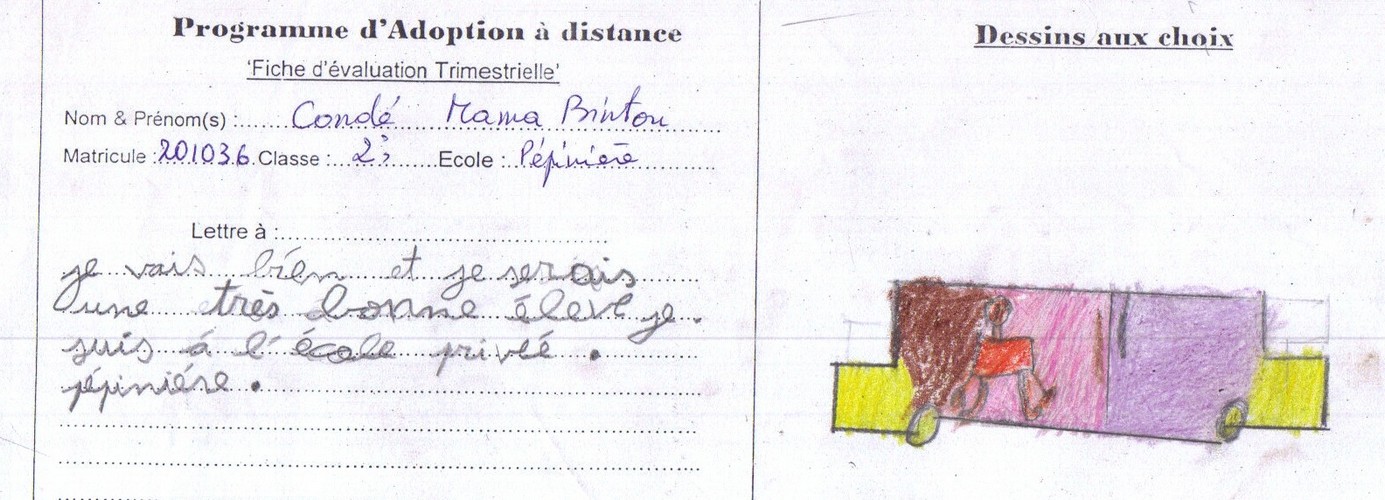 Programme d'Adoption à distance
'Fiche d'évaluation Trimestrielle'
Nom & Prénom(s) : Condé Mama Binton
Matricule : 201036 Classe : 2è Ecole : Pépinière
Lettre à :
je vais bien et je serais
une très bonne éleve je.
suis á l'école privée.
pépiniére.
Dessins aux choix